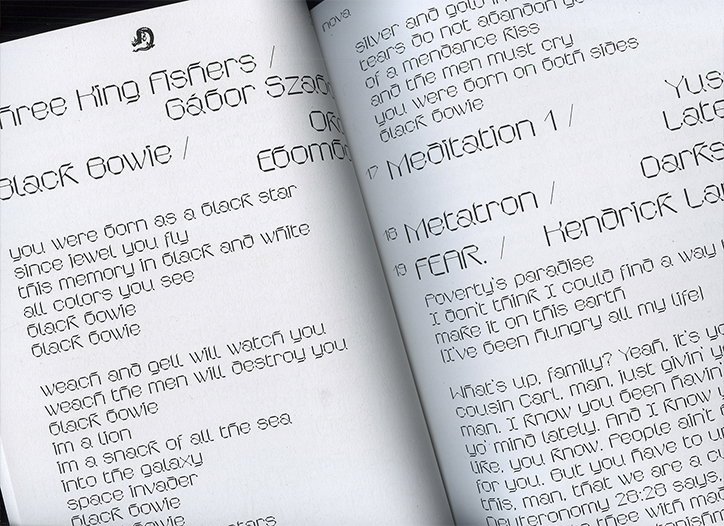 Three King Fishers /
Gábor Szab
Black Bowie /
Oko
Ebombo
you were born as a black star
since jewel you fly
this memory in black and white
all colors you see
black bowie
black bowie
weach and gell will watch you
weach the men will destroy you
black bowie
im a lion
im a snack of all the sea
into the galaxy
space invader
black bowie
stars
nova
silver and gold in
tears do not abandon yo
of a mendance kiss
and the men must cry
you were born on both sides
black bowie
17 Meditation 1 /
Yus
Late
18 Metatron /
Darks
19 FEAR. /
Kendrick La
Poverty's paradise
I don't think I could find a way
make it on this earth
(I've been hungry all my life)
What's up, family? Yeah, it's yo
cousin Carl, man, just givin' yo
man. I know you been havin'
yo' mind lately. And I know
like, you know. People ain't
for you. But you have to u
this, man, that we are a cu
Deuteronomy 28:28 says,
thee with mad